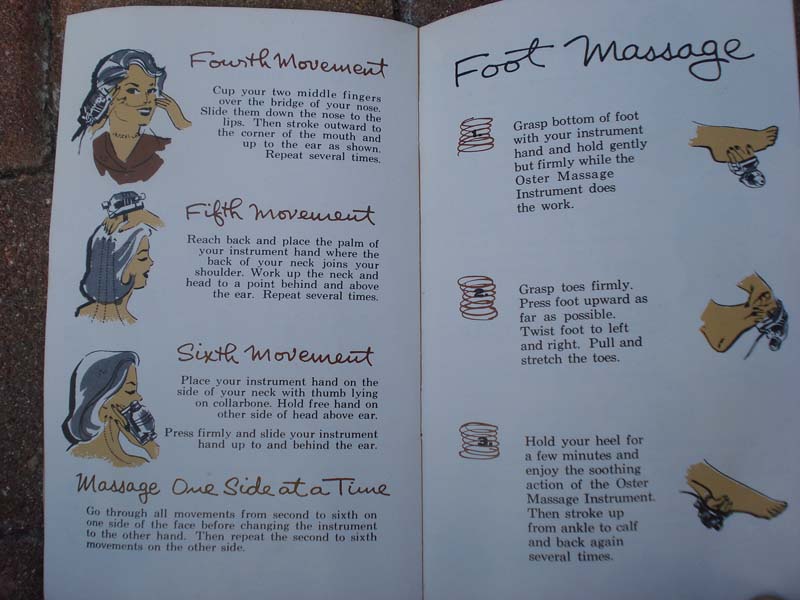 Fourth Movement
Cup your two middle fingers
over the bridge of your nose.
Slide them down the nose to the
lips. Then stroke outward to
the corner of the mouth and
up to the ear as shown.
Repeat several times.
Fifth Movement
Reach back and place the palm of
your instrument hand where the
back of your neck joins your
shoulder. Work up the neck and
head to a point behind and above
the ear. Repeat several times.
Sixth Movement
Place your instrument hand on the
side of your neck with thumb lying
on collarbone. Hold free hand on
other side of head above ear.
Press firmly and slide your instrument
hand up to and behind the ear.
Massage One Side at a Time
Go through all movements from second to sixth on
one side of the face before changing the instrument
to the other hand. Then repeat the second to sixth
movements on the other side.
Foot Massage
1.
Grasp bottom of foot
with your instrument
hand and hold gently
but firmly while the
Oster Massage
Instrument does
the work.
2.
Grasp toes firmly.
Press foot upward as
far as possible.
Twist foot to left
and right. Pull and
stretch the toes.
3.
Hold your heel for
a few minutes and
enjoy the soothing
action of the Oster
Massage Instrument.
Then stroke up
from ankle to calf
and back again
several times.